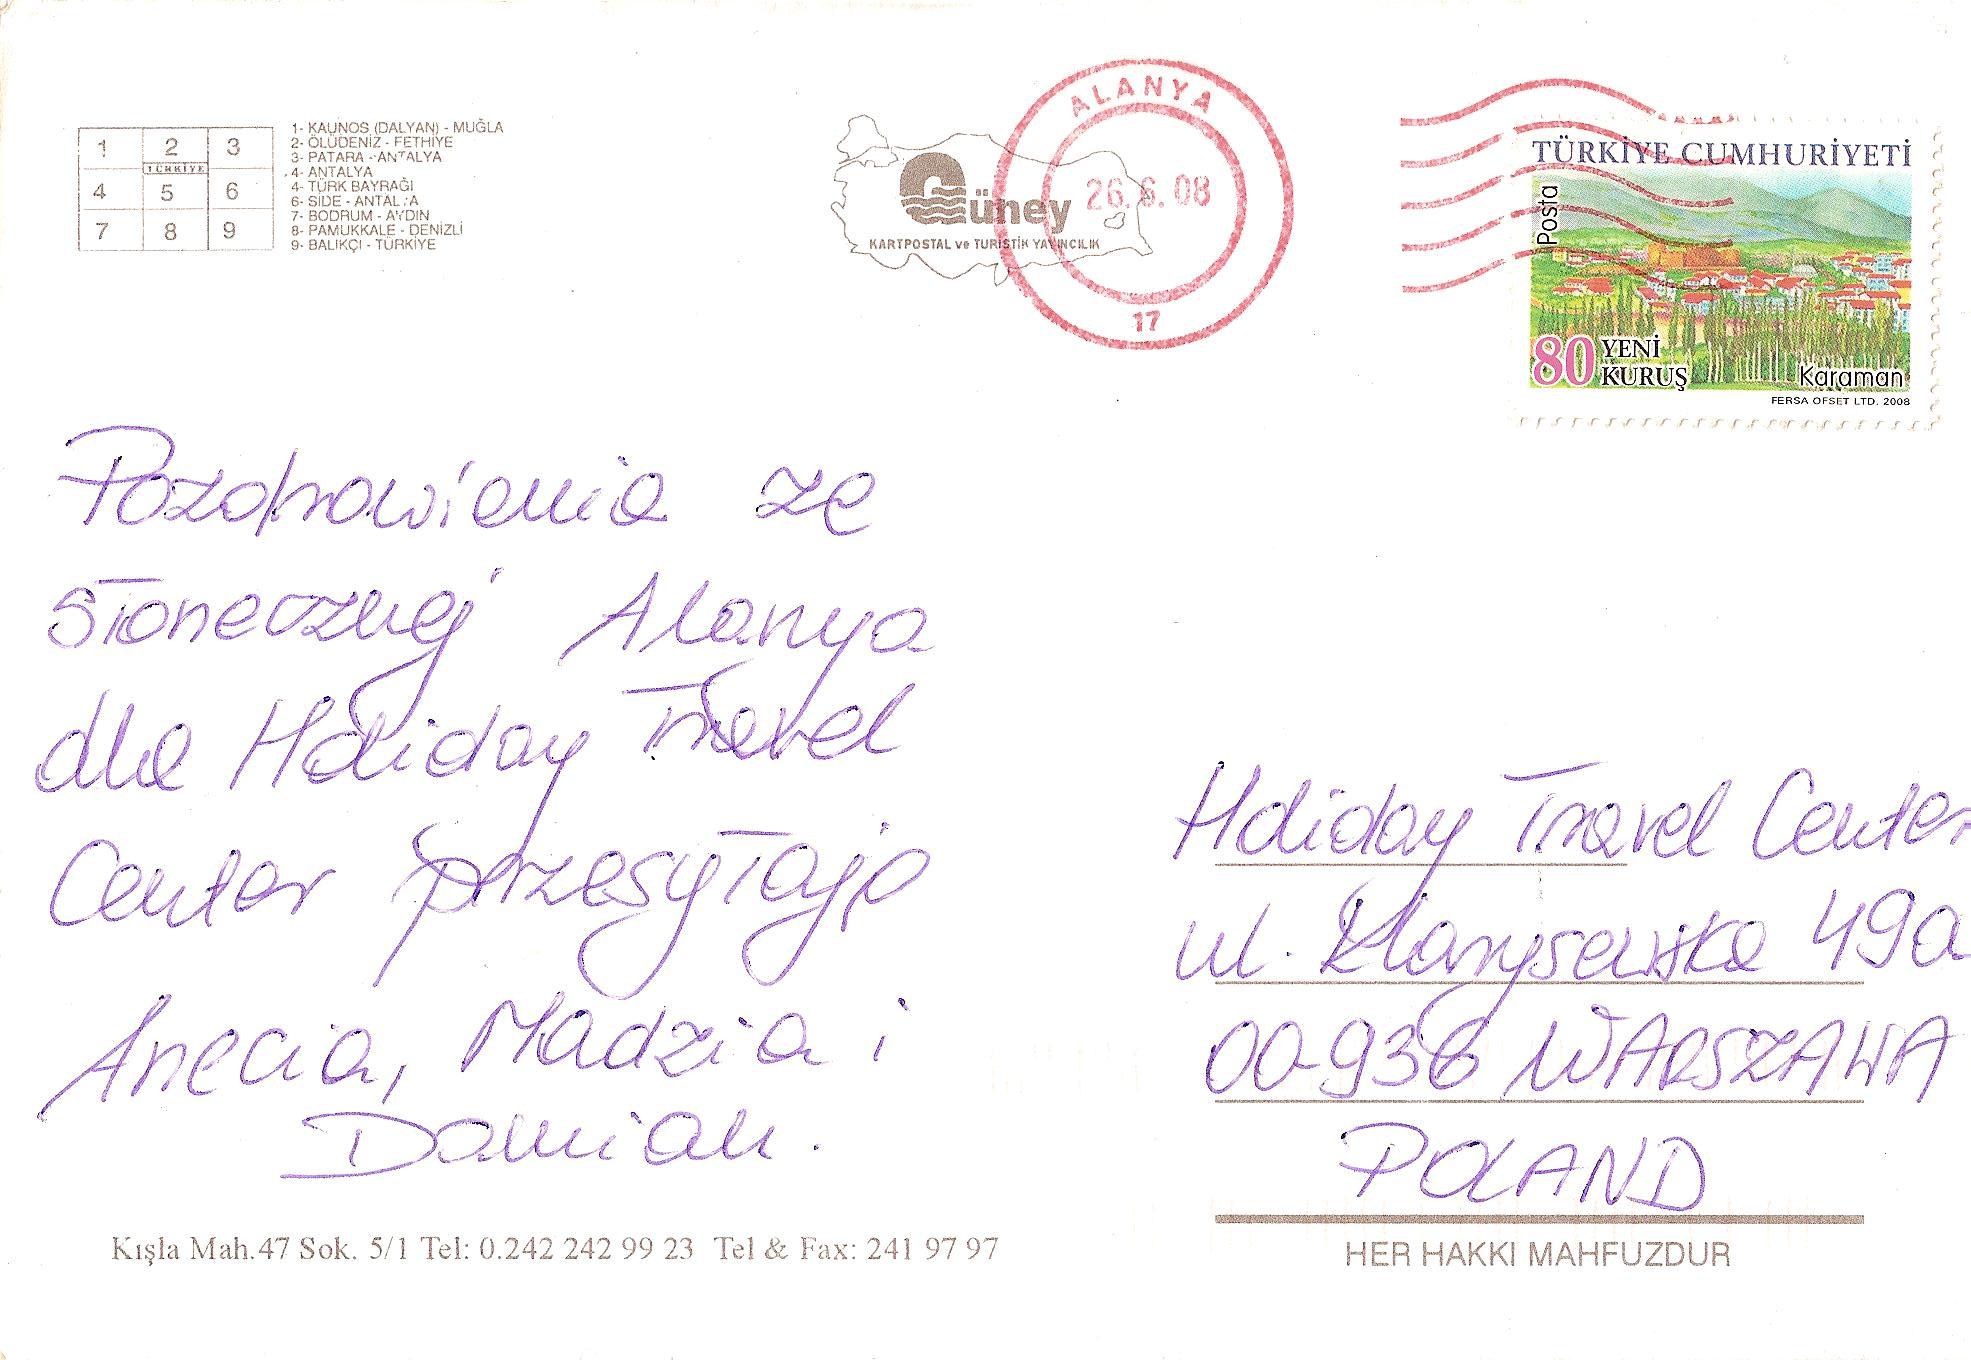 1 2 3
TÜRKİYE
4 5 6
7 8 9
1- KAUNOS (DALYAN) - MUĞLA
2- ÖLÜDENİZ - FETHİYE
3- PATARA - ANTALYA
4- ANTALYA
4- TÜRK BAYRAĞI
6- SIDE - ANTALYA
7- BODRUM - AYDIN
8- PAMUKKALE - DENİZLİ
9- BALIKÇI - TÜRKİYE
Güney
KARTPOSTAL ve TURİSTİK YAYINCILIK
ALANYA
26.6.08
17
TÜRKİYE CUMHURİYETİ
Posta
80 YENİ
KURUŞ
Karaman
FERSA OFSET LTD. 2008
Pozdrowienia ze
słonecznej Alanya
dla Holiday Travel
Center przesyłają
Anecia, Madzia i
Damian.
Holiday Travel Center
ul. 49a
00-936 WARSZAWA
POLAND
Kışla Mah.47 Sok. 5/1 Tel: 0.242 242 99 23 Tel & Fax: 241 97 97
HER HAKKI MAHFUZDUR